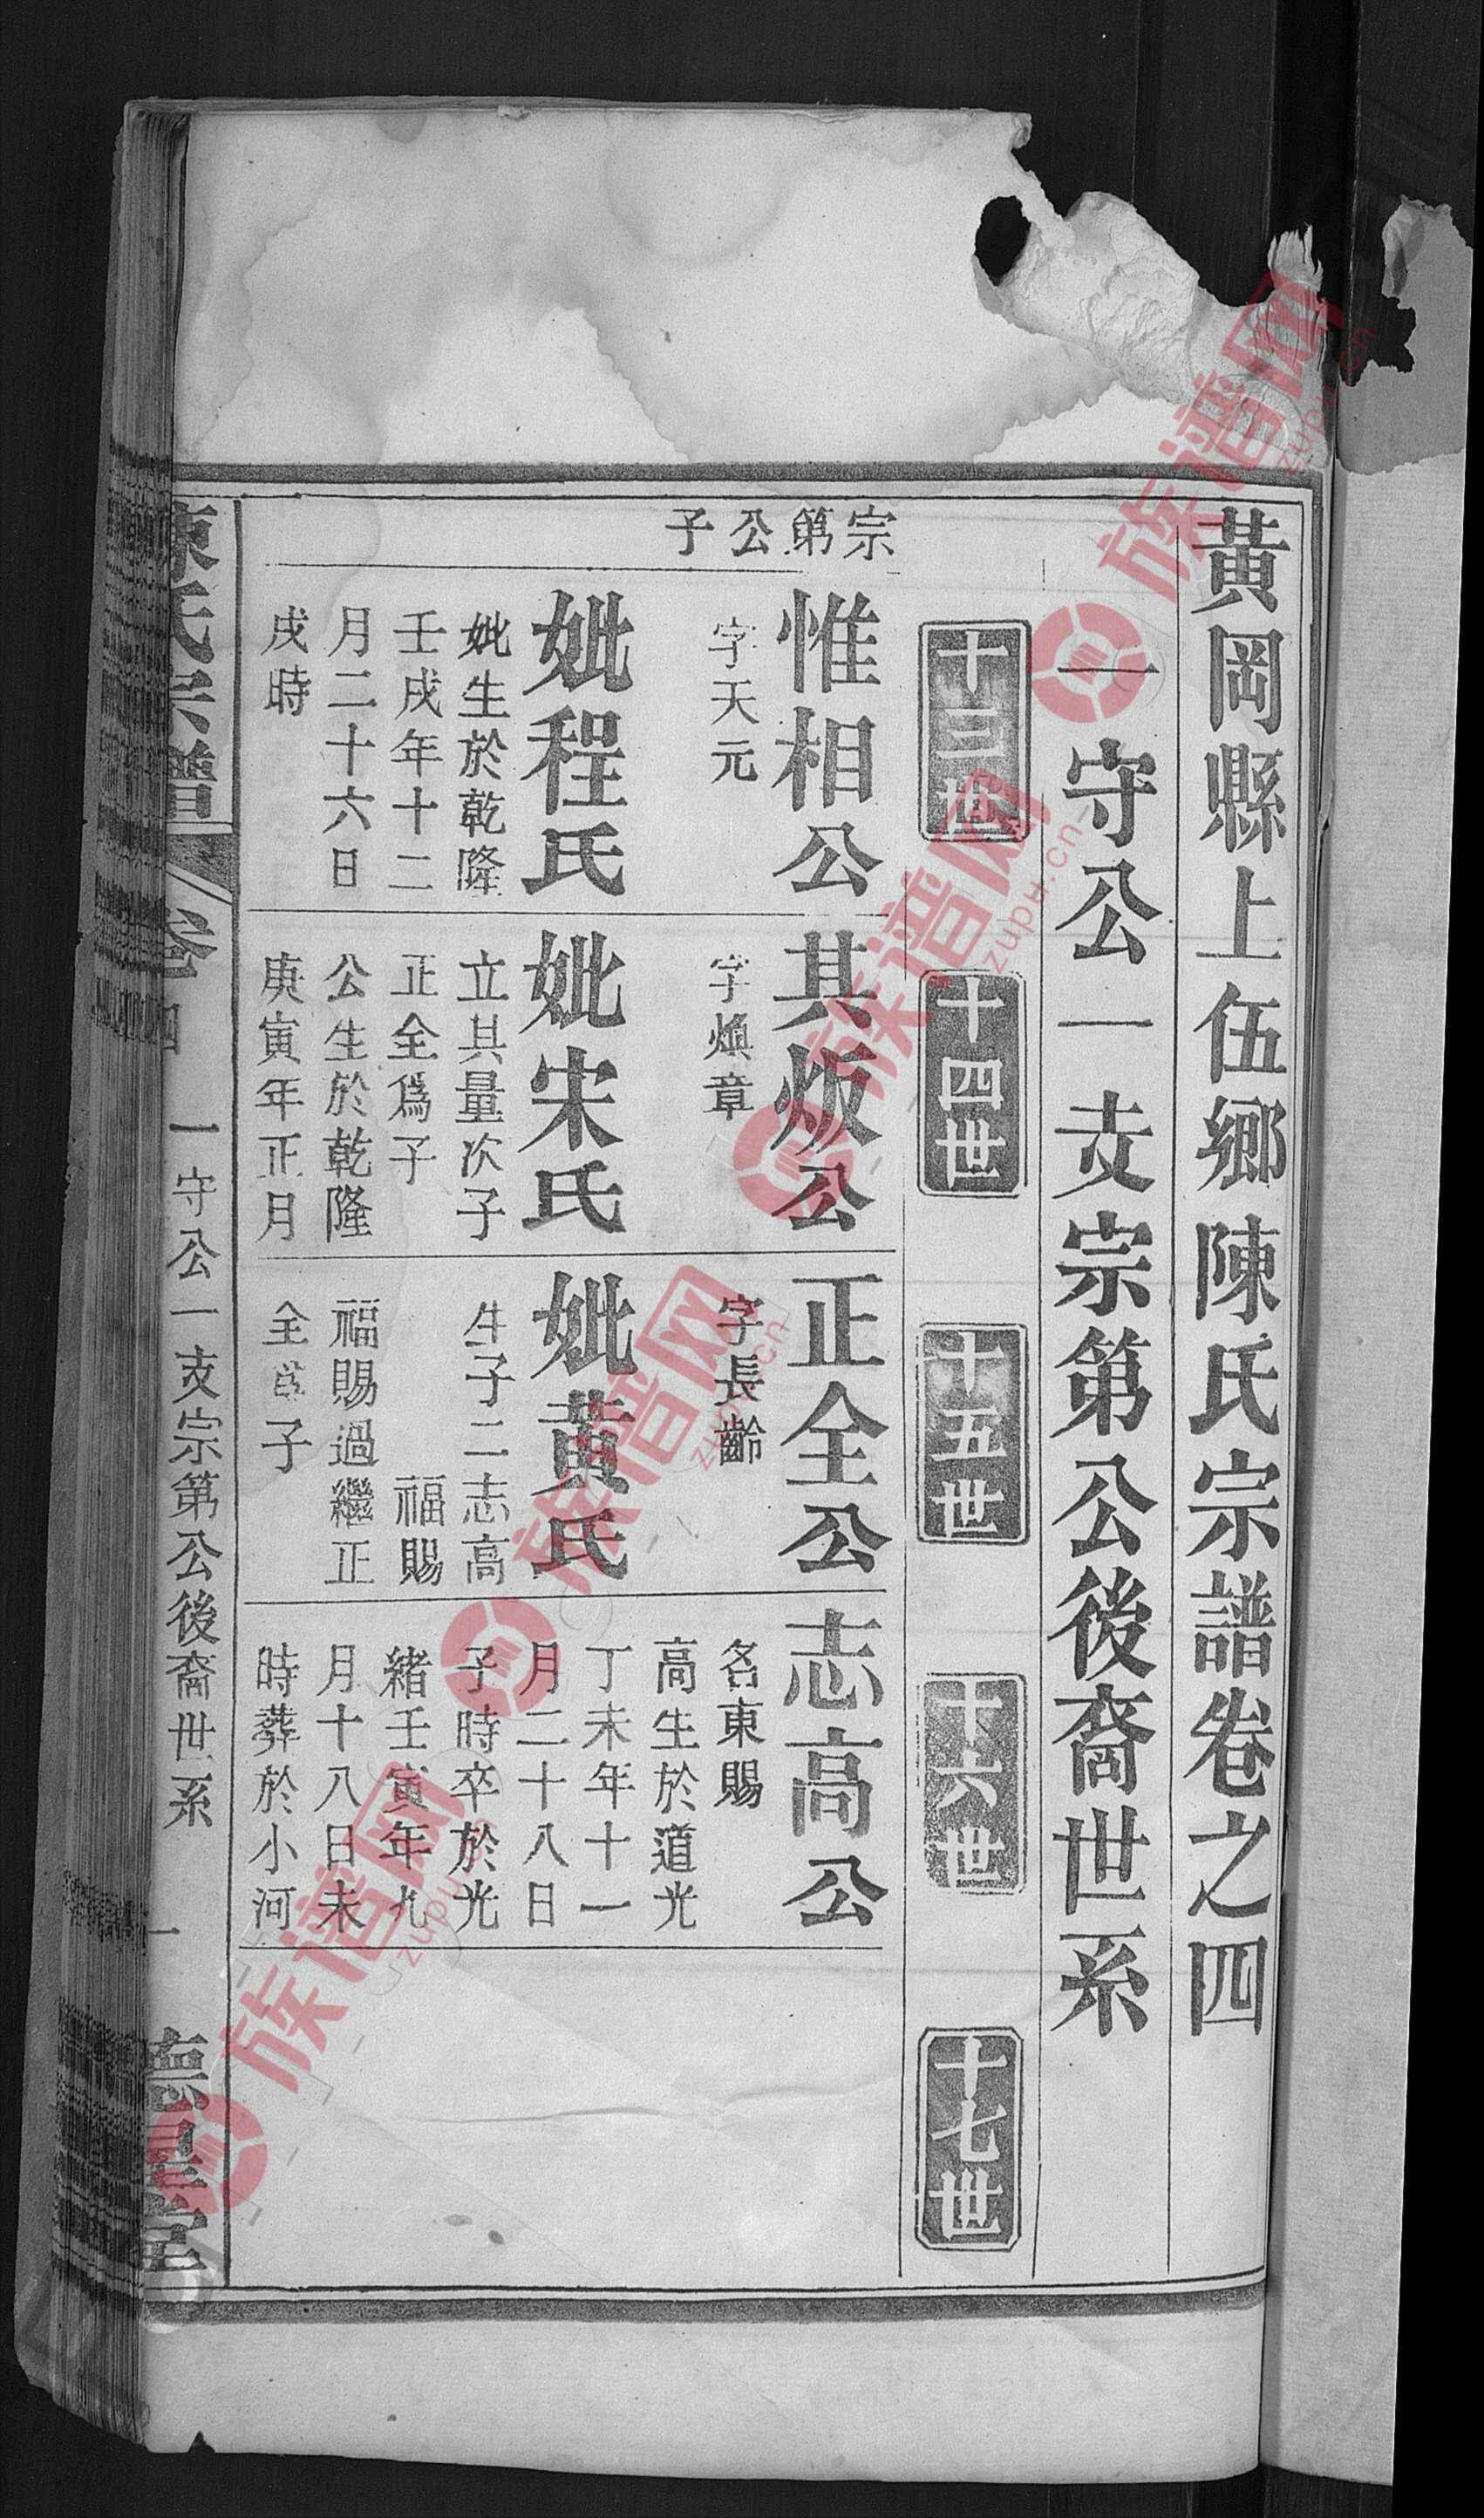 黃岡縣上伍鄉陳氏宗譜卷之四
一守公一支宗第公後裔世系
十三世
十四世
十五世
十六世
十七世
宗第公子
惟相公
字天元
妣程氏
妣生於乾隆
壬戌年十二
月二十六日
戌時
其炍公
字煥章
妣宋氏
立其量次子
正全爲子
公生於乾隆
庚寅年正月
正全公
字長齡
妣黃氏
生子二志高
福賜
福賜過繼正
全 子
志高公
名東賜
高生於道光
丁未年十一
月二十八日
子時卒於光
緒壬寅年九
月十八日未
時葬於小河
陳氏宗譜
卷四
一守公一支宗第公後裔世系
一
德星堂
族谱网
zupu.cn
族谱网
zupu.cn
族谱网
zupu.cn
族谱网
zupu.cn